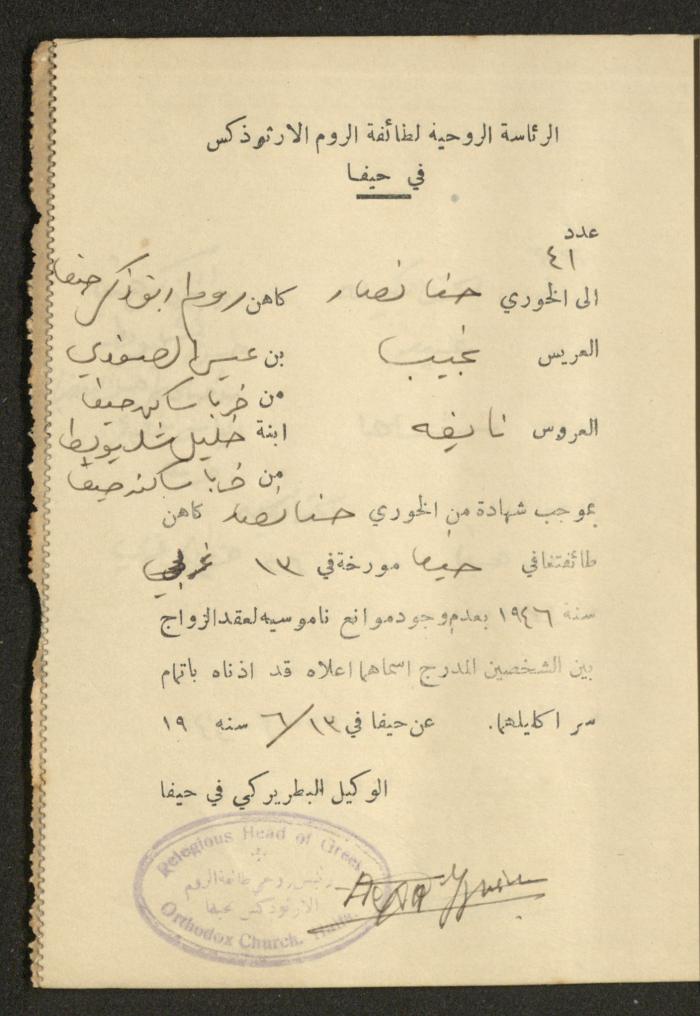 الرئاسة الروحية لطائفة الروم الارثوذكس
في حيفا
عدد
٤١
الى الخوري حنا نصار كاهن روم ارثوذكس حيفا
العريس نجيب بن عيسى الصفوري
من ساكن حيفا
العروس نايفه ابنة خليل
من ساكنه حيفا
بموجب شهادة من الخوري حنا نصار كاهن
طائفتنا في حيفا مورخة في ١٣ غربي
سنة ١٩٤٦ بعدم وجود موانع ناموسيه لعقد الزواج
بين الشخصين المدرج اسماهما اعلاه قد اذناه باتمام
سر اكليلهما. عن حيفا في ١٣/٦ سنه ١٩
الوكيل البطريركي في حيفا
Relegious Head of Greek
رئيس روحي طائفة الروم
الارثوذكس بحيفا
Orthodox Church. Haifa.